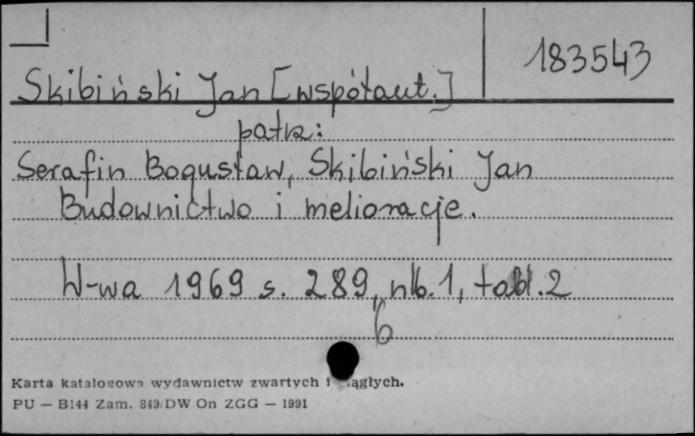 183543
Skibiński Jan [współaut.]
patrz:
Serafin Bogusław, Skibiński Jan
Budownictwo i melioracje.
W-wa 1969 s. 289, nlb. 1, tabl. 2
6
Karta katalogowa wydawnictw zwartych i
PU — B144 Zam. 849/DW On ZGG — 1991